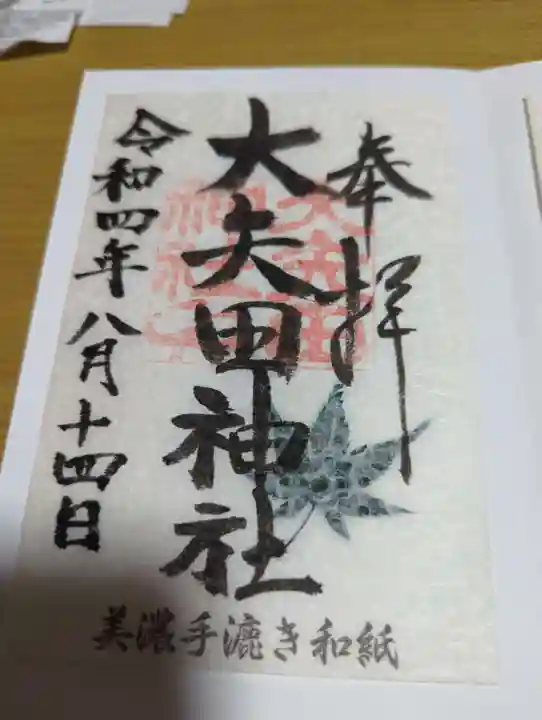 奉拝
大矢田神社
令和四年八月十四日
大矢田神社
美濃手漉き和紙